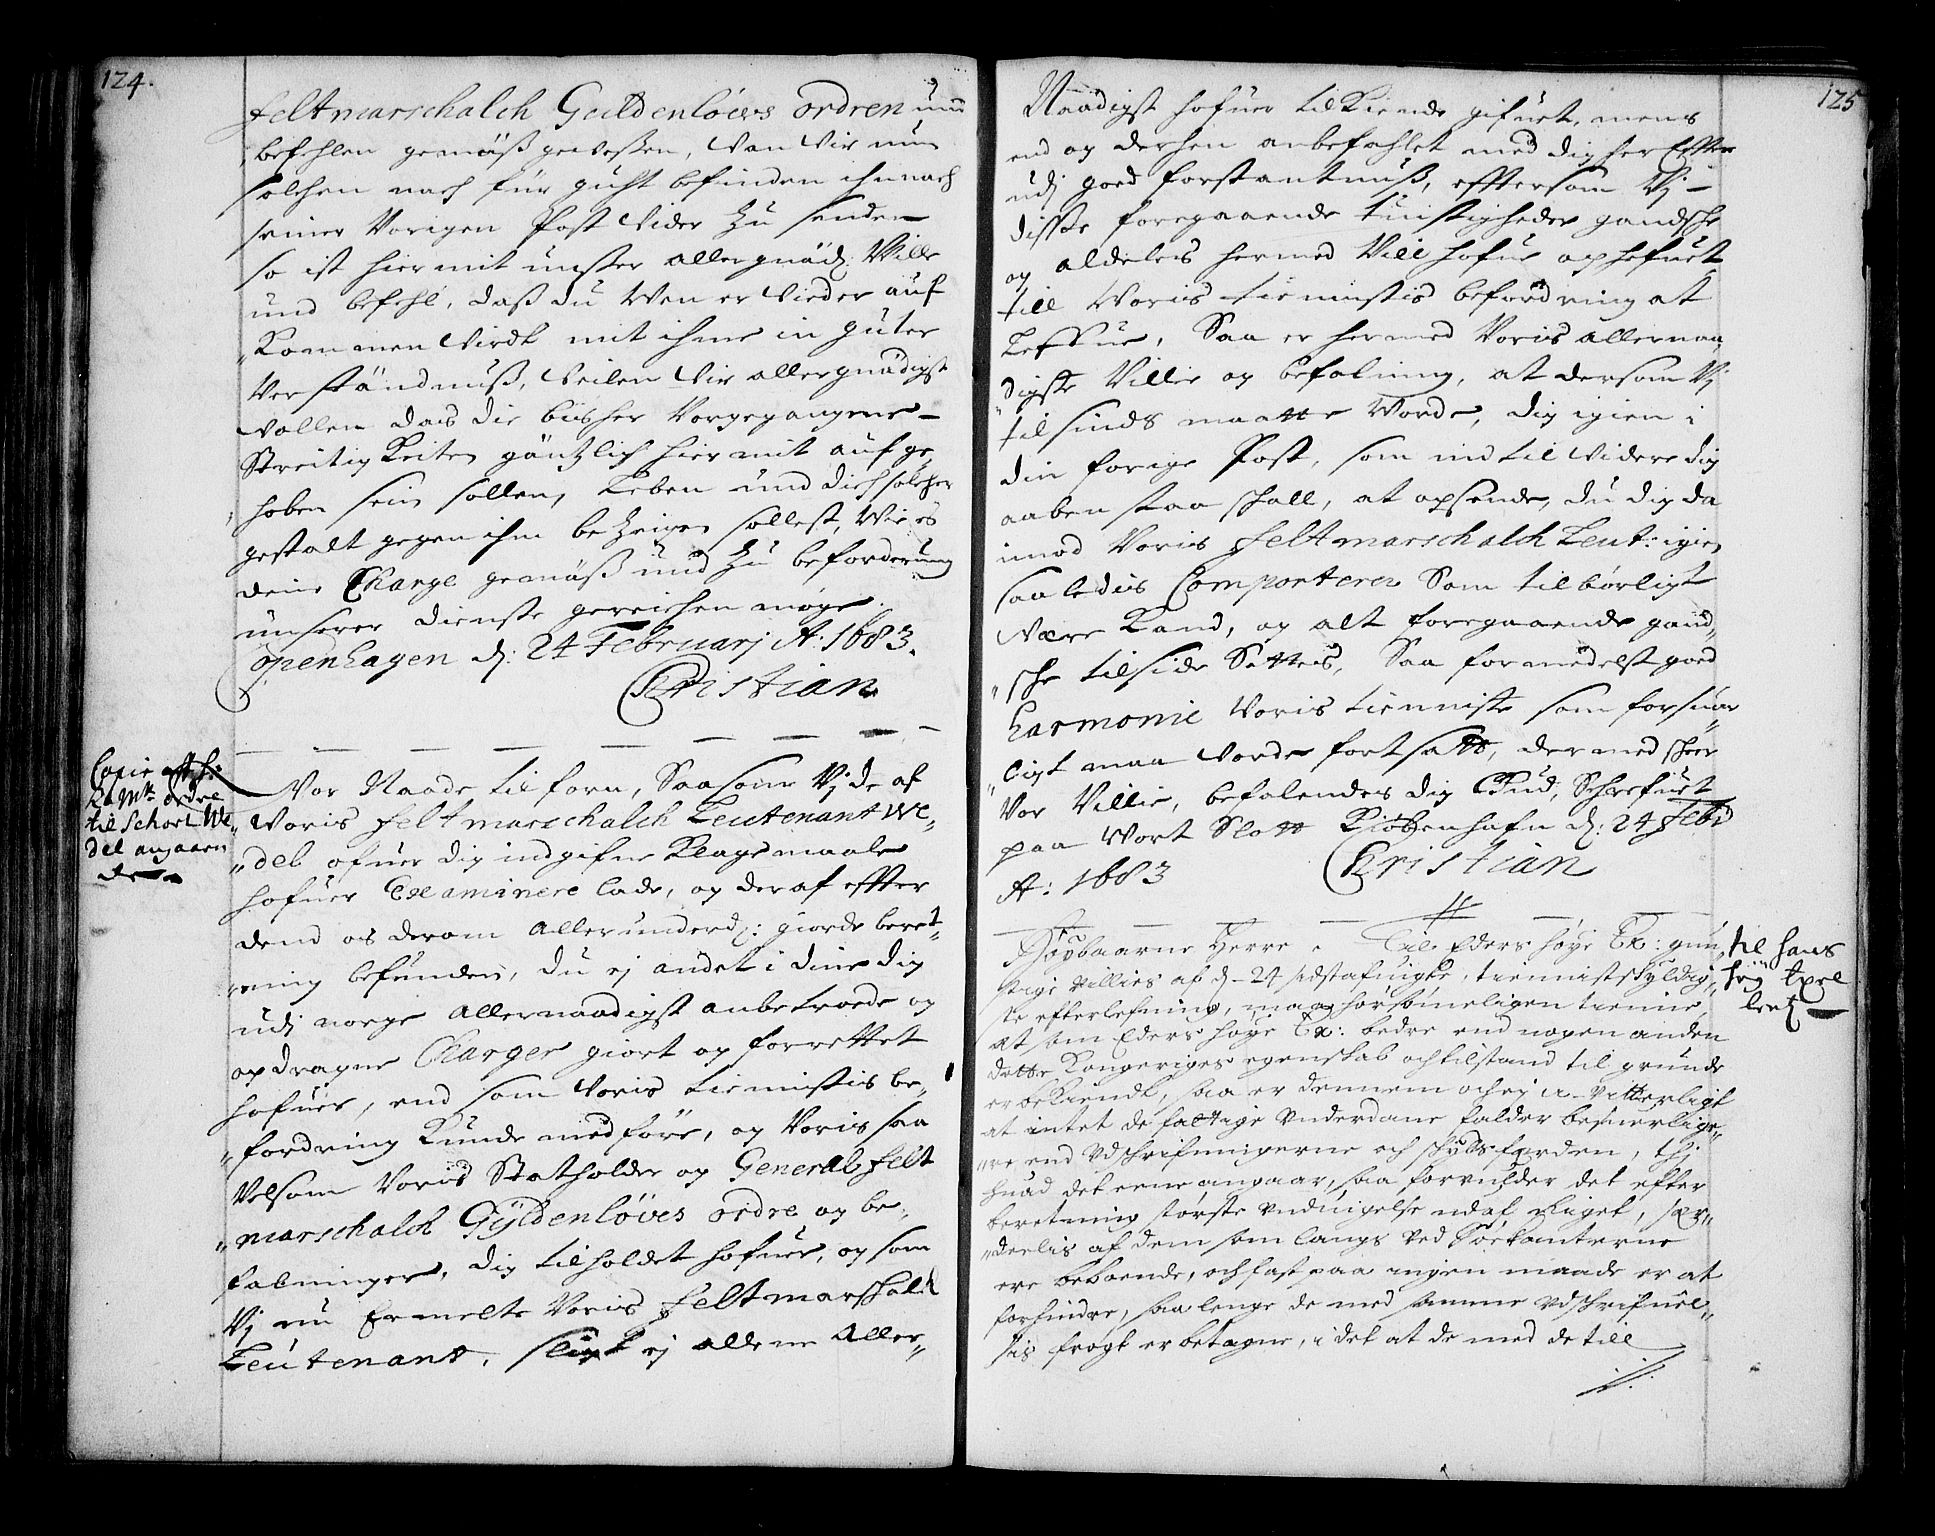 124.
feltmarschalch Guldenlöws ordren und
befehlen gemäß gewessen, Wan Wir nun
solchen nach für guht befinden ihn nach
seiner Vorigen Post Wider zu senden
so ist hiermit unster allergnäd: Wille
und befehl, daß du Wen er Wieder auf
Kommen Wirdt mit ihme in guter
Verständnuß, Weilen Wir allergnädigst
Wollen das die bisher Vorgegangene
Streitigkeiten gäntzlich hiermit aufge„
hoben sein sollen, Leben und dich solcher
gestalt gegen ihm bezeigen sollest, Wie es
deine Charge gemäß und zu beforderung
unserer Dienste gereichen möge.
Copenhagen d: 24 Februarj A: 1683.
Christian
Copie aff h:
Ko Mts ordre
til Schort We
del angaaen
de
Vor Naade tilforn, Saasom Vj de af
Voris feltmarschalch Leutenant We„
„del ofuer dig indgifne Klagemaale
hofuer Examinere lade, og deraf effter
dend os derom Allerunderd: giorde beret„
ning befunden, du ej andet i dine dig
udj norge Allernaadigst anbetroede og
opdragne Charger giort og forrettet
hofuer, end som Voris tiennistis be„
„fordring Kunde medföre, og Voris saa
Velsom Voris Statholder og General felt
„marschalch Gyldenlöves ordre og be„
falninger, dig tilholdet hofuer, og som
Vj nu Ermelte Voris feltmarschalch
Leutenant, sligt ej allene Aller„
125
Naadigst hofuer tilkiende gifuet, mens
end og derhen anbefahlet med dig her Effter
udj goed forstantnuß, efftersom Vj
disse foregaaende tuistigheder gandsche
og aldeles hermed Vill hofue ophefuet
till Voris tiennistis befordring at
Leffue, Saa er hermed Voris allernaa„
digste Villie og befalning, at dersom Vj
til sinds maatte Worde, dig igien i
din forige Post, som indtil Videre dig
aaben staa schall, at opsende, du dig da
imod Voris feltmarschalch Leut: igien
saaledis Comportere Som tilbørligt
Være Kand, og alt foregaaende gand„
„sche tilside Settes, Saa formedelst goed
harmonie Voris tienniste som forsuar
„ligt maa Vorde fortsatt, dermed scheer
Vor Villie, befalendes dig Gud, Schrefuet
paa Vort Slott Kiøbenhafn d: 24 Feb:
A: 1683
Christian
Til hans
høy Exel
lentz
Høybaarne Herre. Til Eders høye Ex: gun„
stige Villies af d. 24 sidstafuigte, tiennistskyldig„
ste efterlefning, maa hörsömeligen tienne,
at som Eders høye Ex: bedre end nogen anden
dette Kongeriges egenskab och tilstand til grunde
er bekiendt, saa er dennem och ej u-Vitterligt
at intet de fattige Vnderdane falder besuerlige„
„re end Vdschrifningerne och skydsfærden, thj
huad det eene angaar, saa foraarsager det efter
beretning største Vnduigelse ud af Riget, sær„
„deelis af dem som langs Ved Søekanterne
ere beboende, och fast paa ingen maade er at
forhindre, saa lenge de med samme Vdschrifuel„
sis frögt er betagne, i det at de med de till